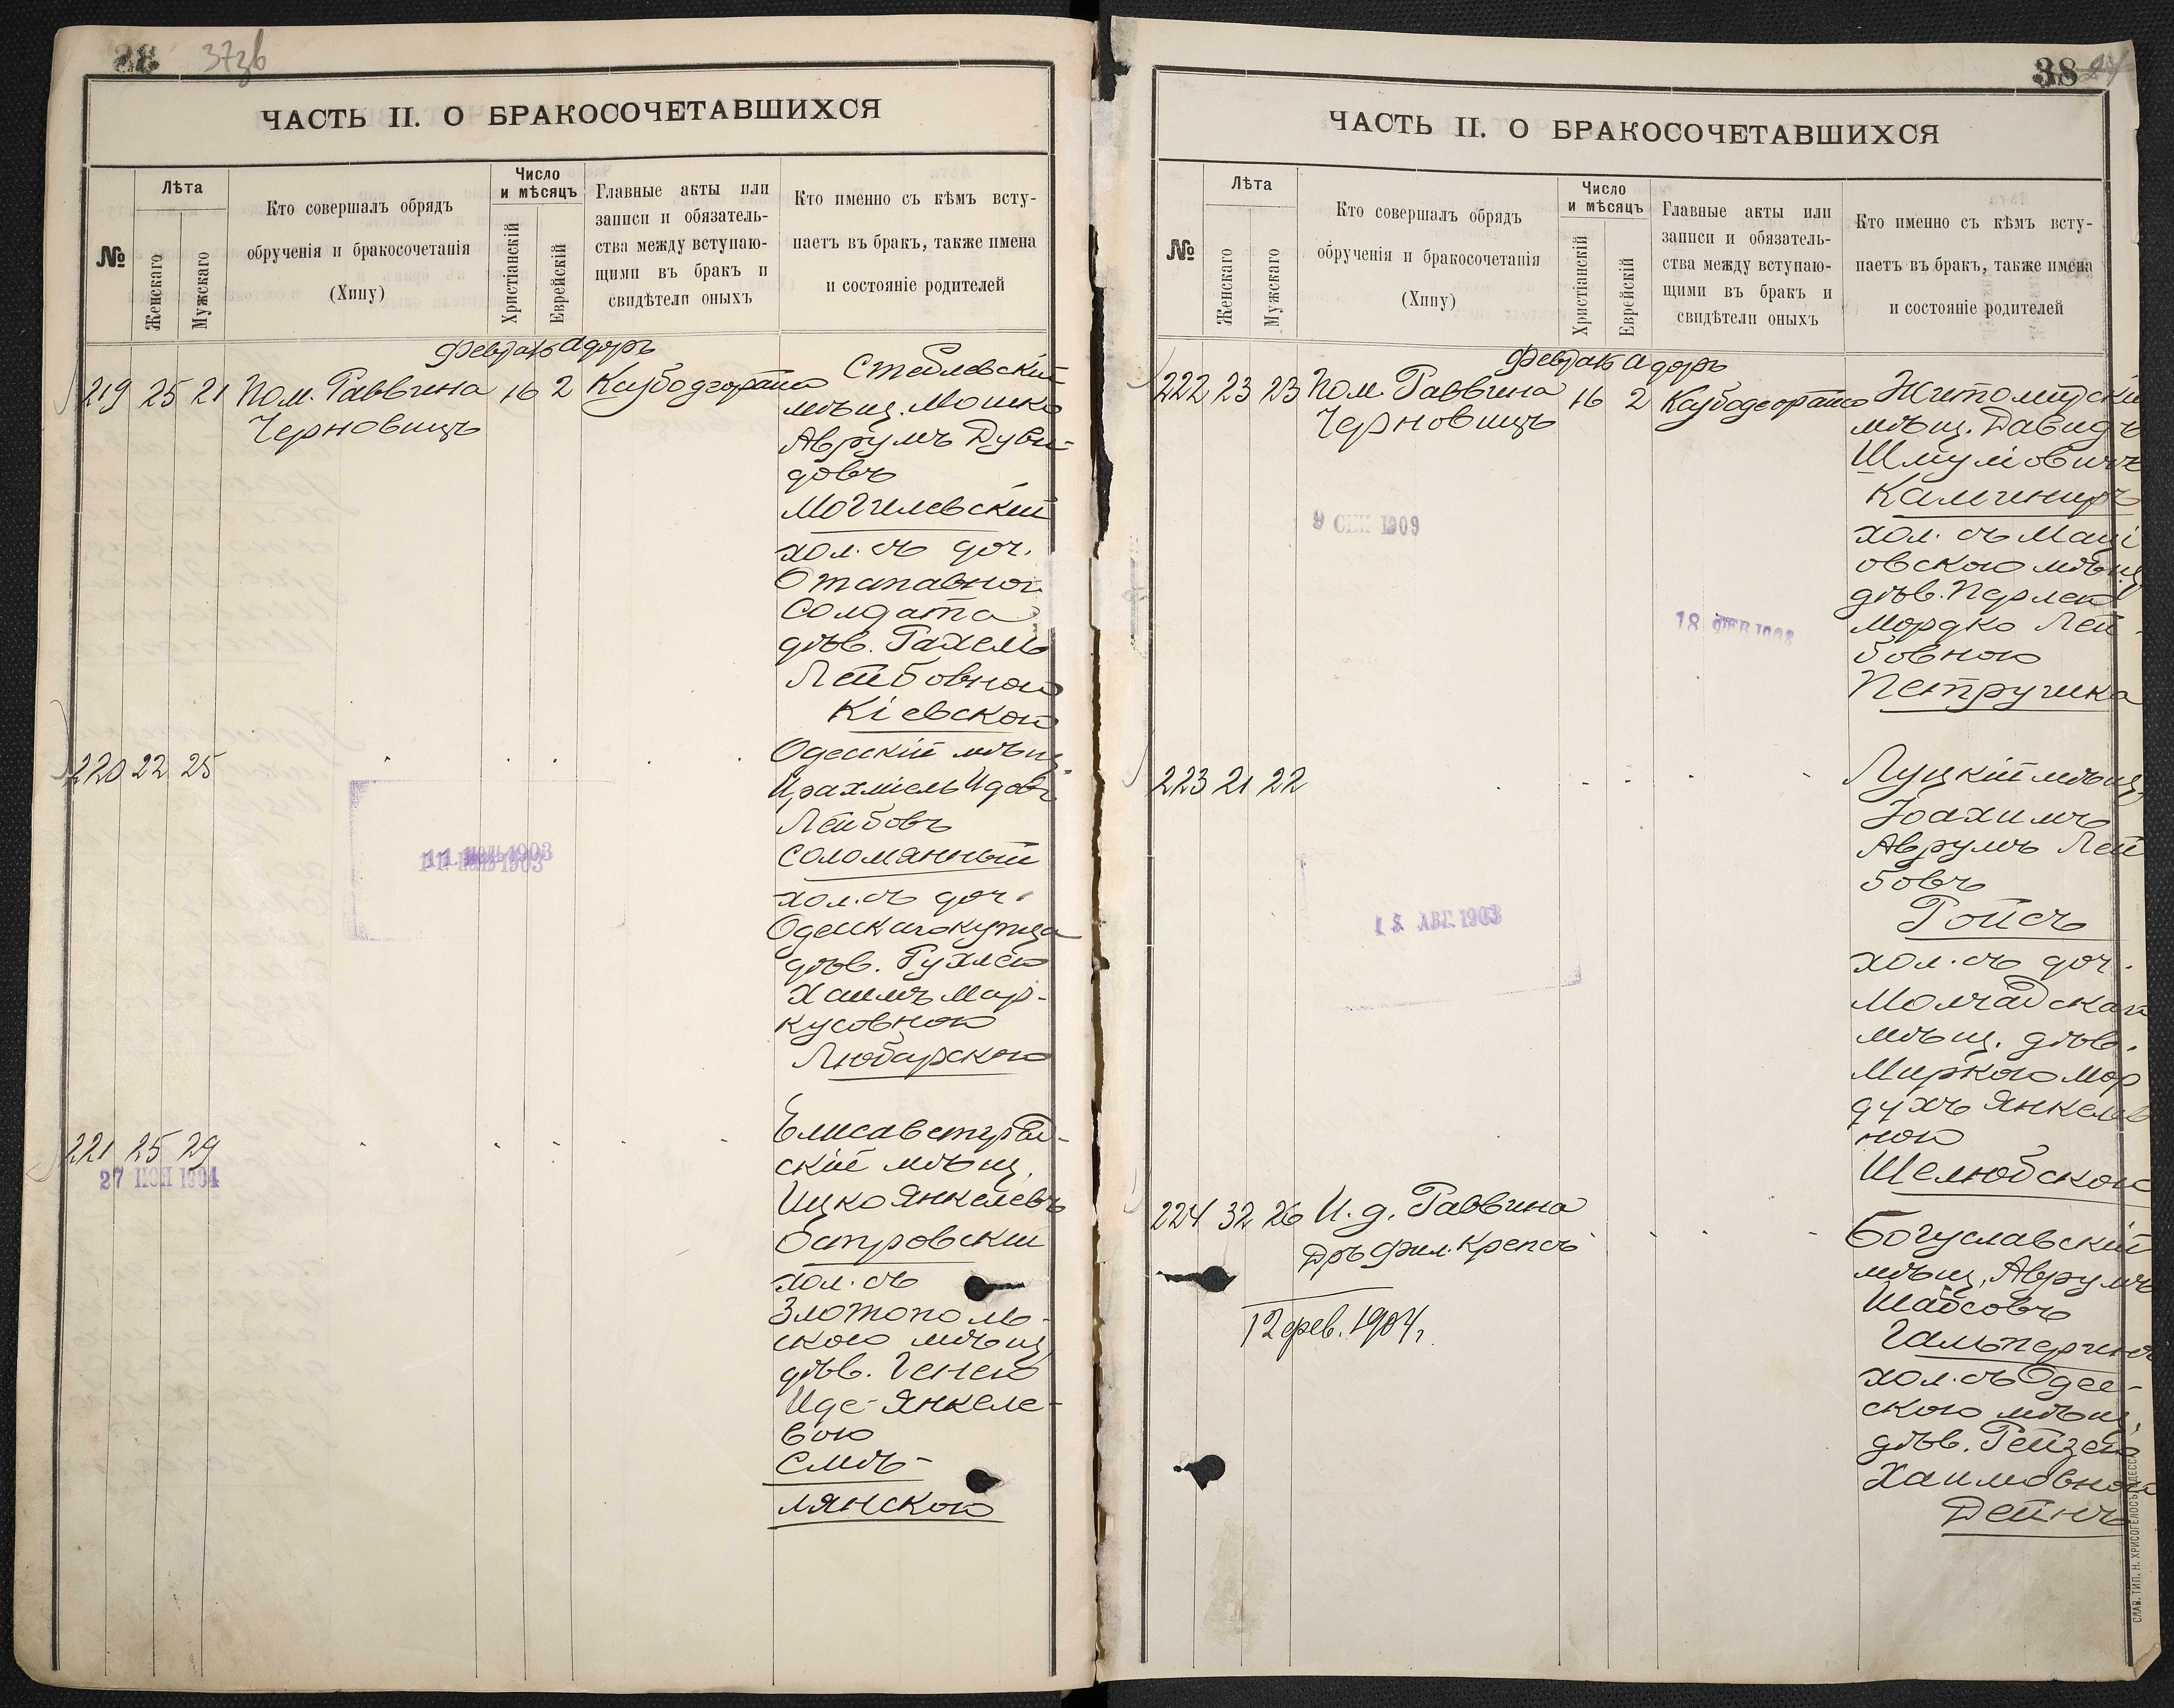 37зв
ЧАСТЬ II. О БРАКОСОЧЕТАВШИХСЯ
№
Лѣта
Женскаго
Мужскаго
Кто совершалъ обрядъ
обрученія и бракосочетанія
(Хипу)
Число
и мѣсяцъ
Христіанскій
Еврейскій
Главные акты или
записи и обязатель-
ства между вступаю-
щими въ бракъ и
свидѣтели оныхъ
Кто именно съ кѣмъ всту-
паетъ въ бракъ, также имена
и состояніе родителей
Адоръ
219 25 21 Пом. Раввина 16 2
Черновицъ
Стеблевскій
мѣщ. Мошко
Аврумъ Дуви-
довъ
Могилевскій
хол. съ доч.
Отставного
Солдата
дѣв. Рахель
Лейбовною
Кіевскою
220 22 25
Одесскій мѣщ.
Лейбовъ
Соломянный
хол. съ доч.
Одесскаго купца
дѣв. Рухлею
Хаимъ Мар-
кусовною
Любарскою
221 25 29
27 ІЮН 1904
Елисаветград-
скій мѣщ.
Ицко Янкелевъ
Островскій
хол. съ
Златополь-
скою мѣщ.
дѣв. Генею
Иде-Янкеле-
вою
Смѣ-
лянскою
38
ЧАСТЬ II. О БРАКОСОЧЕТАВШИХСЯ
№
Лѣта
Женскаго
Мужскаго
Кто совершалъ обрядъ
обрученія и бракосочетанія
(Хипу)
Число
и мѣсяцъ
Христіанскій
Еврейскій
Главные акты или
записи и обязатель-
ства между вступаю-
щими въ бракъ и
свидѣтели оныхъ
Кто именно съ кѣмъ всту-
паетъ въ бракъ, также имена
и состояніе родителей
Адоръ
222 23 23 Пом. Раввина 16 2
Черновицъ
Житомірскій
мѣщ. Давидъ
Шмуліовичъ
Калининъ
хол. съ Маці
овскою мѣщ.
дѣв. Перлею
Мордко Лей-
бовною
Петрушка
223 21 22
13 АВГ. 1903
Луцкій мѣщ.
Іоахимъ
Аврумъ Лей
бовъ
Ройсъ
хол. съ доч.
Молчадскаго
мѣщ. дѣв.
Миркою Мор
духъ Янкелев
ною
Шелюбскою
224 32 26 И. д. Раввина
Дръ Фил. Крепсъ
12 фев. 1904 г.
Богуславскій
мѣщ. Аврумъ
Шабсовъ
Гальперинъ
хол. съ Одес-
скою мѣщ.
дѣв. Рейзею
Хаимовною
Дейчъ
СЛАВ. ТИП. Н. ХРИСОГЕЛОСЪ, ОДЕССА